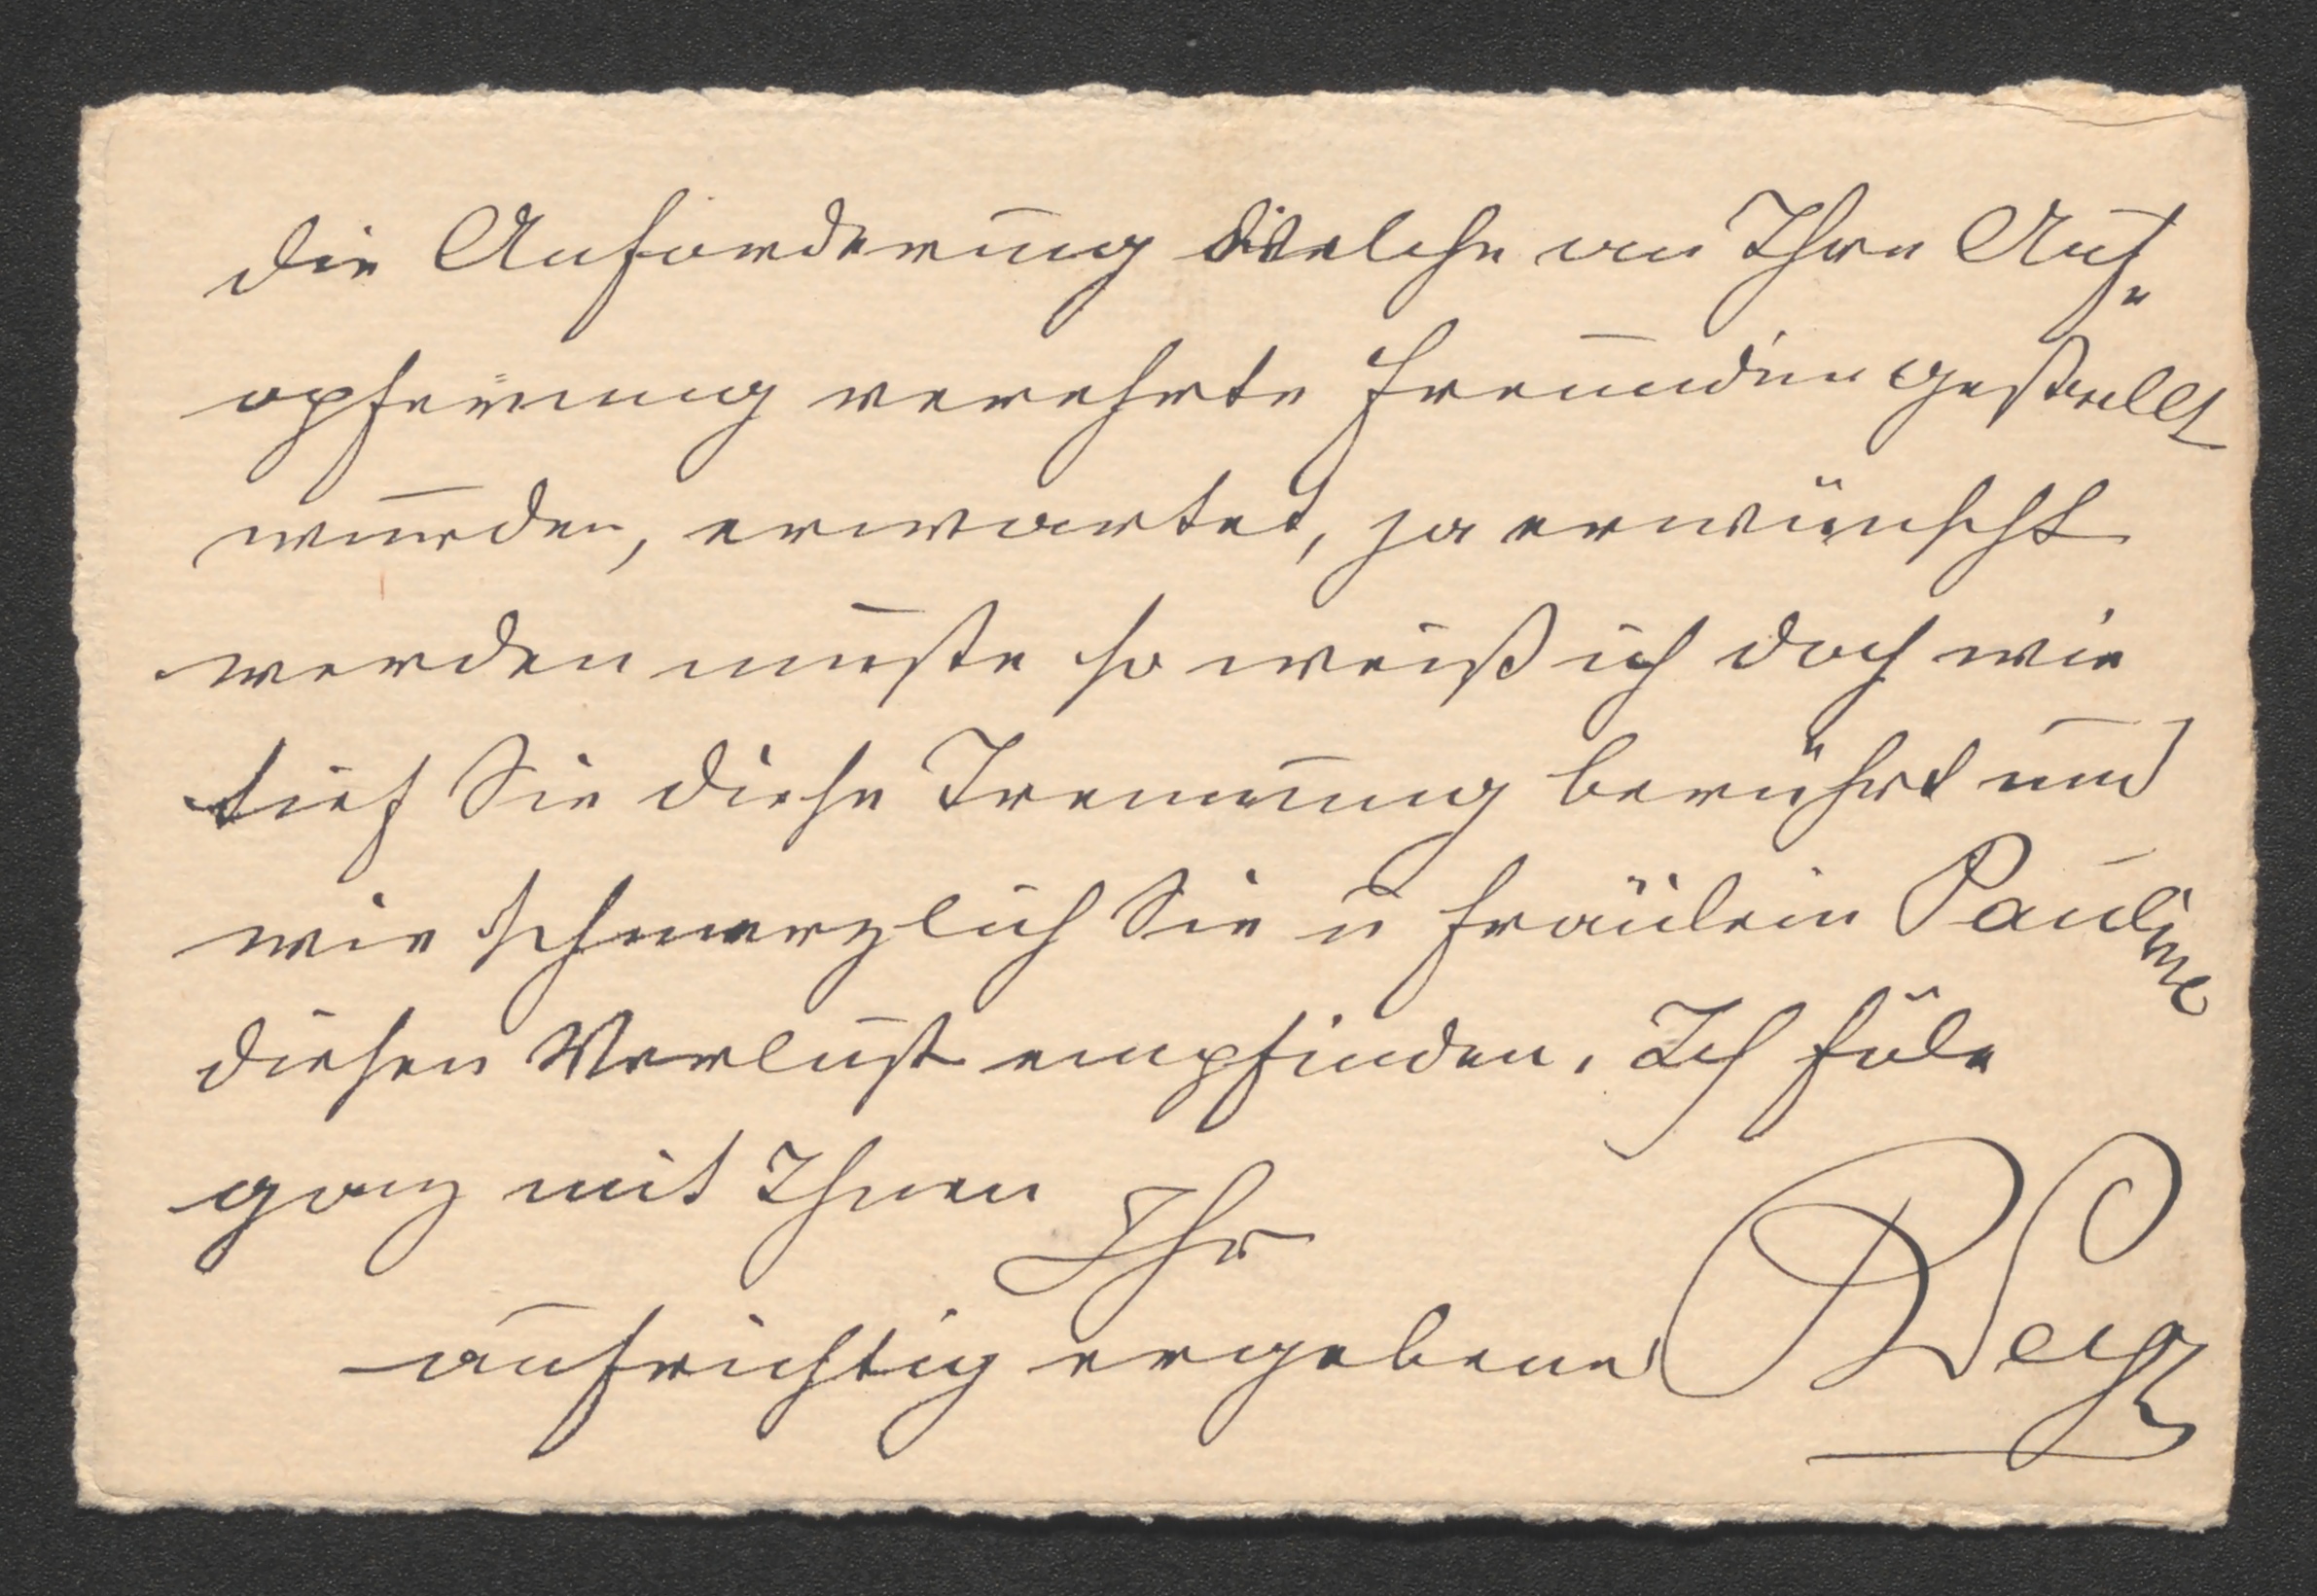 die Anforderung welche an Ihre Auf-
opferung verehrte Freundin gestellt
wurden, erwartet, ja erwünscht
werden muste so weiß ich doch wie
tief Sie diese Trennung berührt und
wie schmerzlich Sie u Fräulein Pauline
diesen Verlust empfinden. Ich füle
ganz mit Ihnen Ihr
aufrichtig ergebener